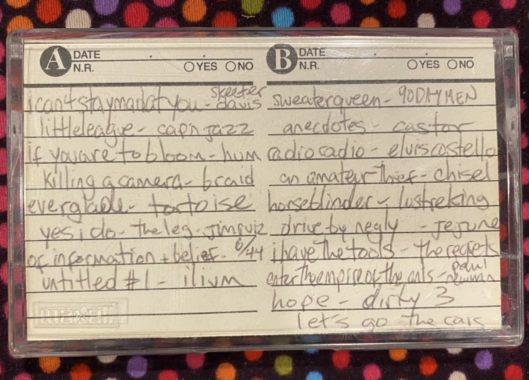 A DATE . .
N.R. YES NO
i can't stay mad at you - skeeter davis
little league - cap'n jazz
if you are to bloom - hum
killing a camera - braid
everglade - tortoise
yes i do - the leg. jim ruiz
of information + belief - 6/44
untitled #1 - ilium
maxell
B DATE . .
N.R. YES NO
sweaterqueen - 90 DAY MEN
anecdotes - castor
radio radio - elvis costello
an amateur thief - chisel
horseblinder - lustre king
drive by - jejune
i have the tools - the regrets
enter the empire of the ants - paul newman
hope - dirty 3
let's go the cars